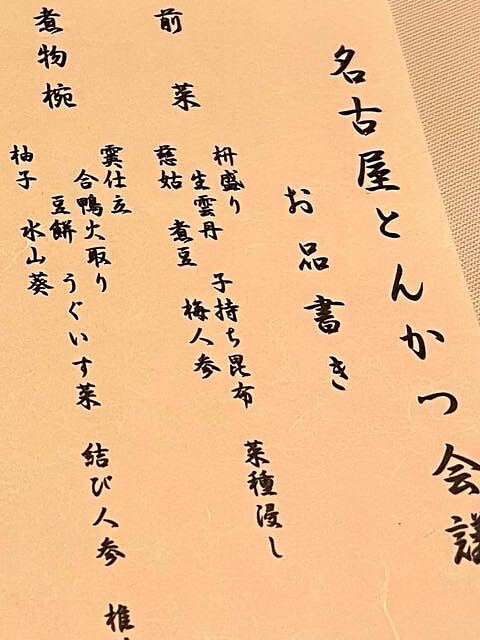 名古屋とんかつ会議
お品書き
前菜
枡盛り 子持ち昆布 菜種浸し
生雲丹 煮豆 梅人参
慈姑
煮物椀
霙仕立
合鴨火取り うぐいす菜 結び人参
豆餅
柚子 水山葵